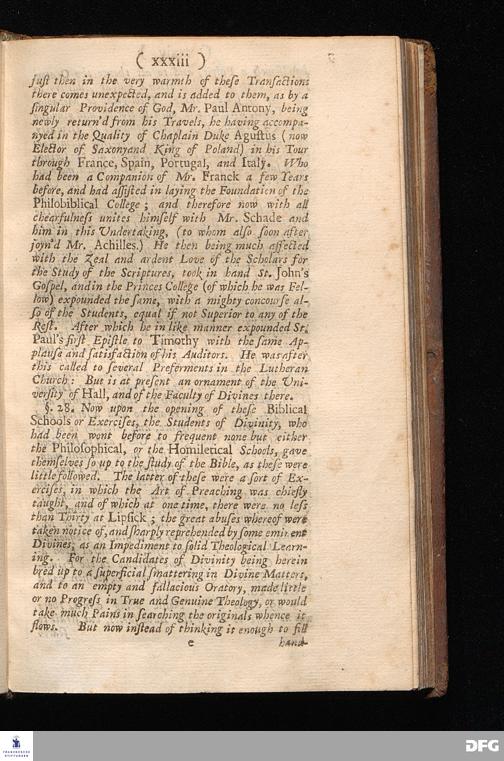 ( xxxiii )
just then in the very warmth of these Transactions
there comes unexpected, and is added to them, as by a
singular Providence of God, Mr. Paul Antony, being
newly return'd from his Travels, he having accompa-
nyed in the Quality of Chaplain Duke Agustus ( now
Elector of Saxonyand King of Poland) in his Tour
through France, Spain, Portugal, and Italy. Who
had been a Companion of Mr. Franck a few Years
before, and had assisted in laying the Foundation of the
Philobiblical College ; and therefore now with all
chearfulness unites himself with Mr. Schade and
him in this Undertaking, (to whom also soon after
joyn'd Mr. Achilles.) He then being much affected
with the Zeal and ardent Love of the Scholars for
the Study of the Scriptures, took in hand St. John's
Gospel, and in the Princes College (of which he was Fel-
low) expounded the same, with a mighty concourse al-
so of the Students, equal if not Superior to any of the
Rest. After which he in like manner expounded St.
Paul's first Epistle to Timothy with the same Ap-
plause and satisfaction of his Auditors. He was after
this called to several Preferments in the Lutheran
Church : But is at present an ornament of the Uni-
versity of Hall, and of the Faculty of Divines there.
§. 28. Now upon the opening of these Biblical
Schools or Exercises, the Students of Divinity, who
had been wont before to frequent none but either
the Philosophical, or the Homiletical Schools, gave
themselves so up to the study of the Bible, as these were
little followed. The latter of these were a sort of Ex-
ercises, in which the Art of Preaching was chiefly
taught, and of which at one time, there were no less
than Thirty at Lipsick ; the great abuses whereof were
taken notice of, and sharply reprehended by some eminent
Divines, as an Impediment to solid Theological Learn-
ing. For the Candidates of Divinity being herein
bred up to a superficial smattering in Divine Matters,
and to an empty and fallacious Oratory, made little
or no Progress in True and Genuine Theology, or would
take much Pains in searching the originals whence it
flows. But now instead of thinking it enough to fill
e hand-
FRANCKESCHE
STIFTUNGEN
DFG